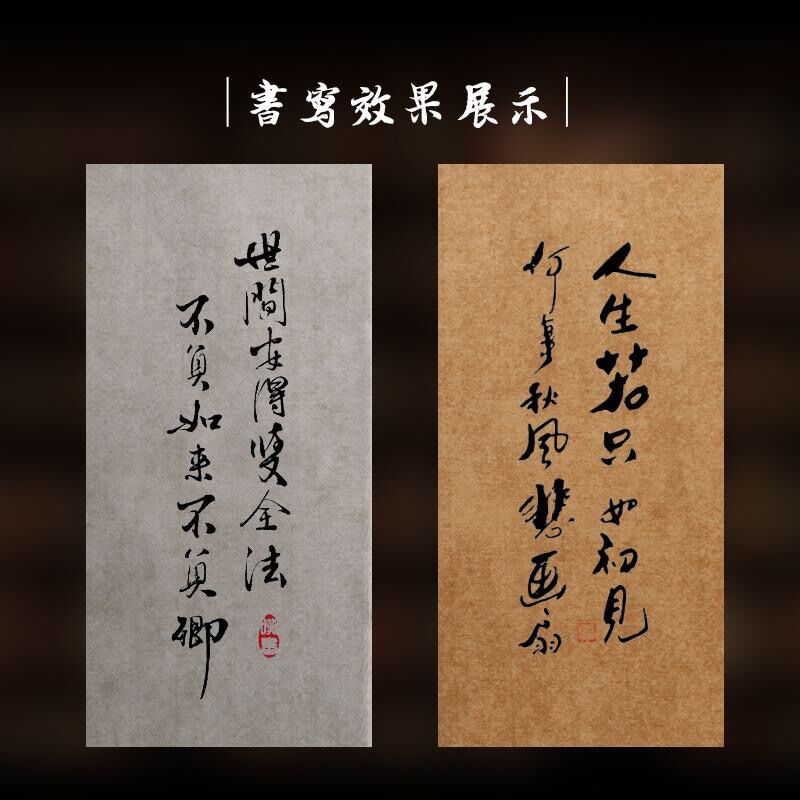 書寫效果展示
世間安得雙全法
不負如来不負卿
人生若只如初見
何事秋風悲画扇